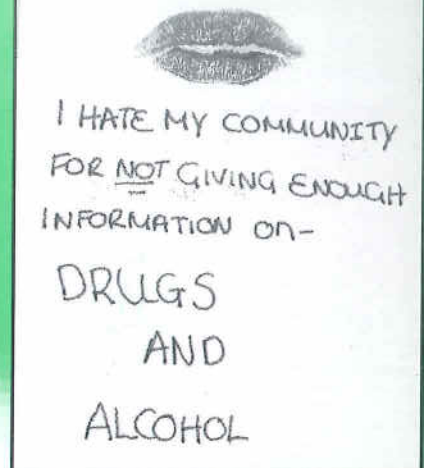 I HATE MY COMMUNITY
FOR NOT GIVING ENOUGH
INFORMATION ON-
DRUGS
AND
ALCOHOL